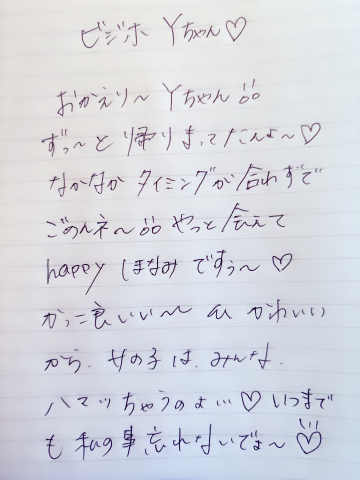 ビジホ Yちゃん♡
おかえり〜 Yちゃん
ずっ〜と 帰りまってたんよ〜♡
なかなか タイミングが 合わずで
ごめんネ〜 やっと 会えて
happy ほなみ ですぅ〜♡
かっこ良いい〜 かわいい
から、女の子は、みんな、
ハマッちゃうのよ…♡ いつまで
も 私の事、忘れないでよ〜♡